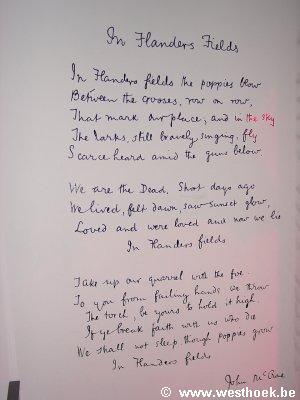 In Flanders Fields
In Flanders fields the poppies blow
Between the crosses, row on row,
That mark our place; and in the sky
The larks, still bravely singing, fly
Scarce heard amid the guns below.
We are the Dead. Short days ago
We lived, felt dawn, saw sunset glow,
Loved and were loved and now we lie
In Flanders fields
Take up our quarrel with the foe:
To you from failing hands we throw
The torch, be yours to hold it high.
If ye break faith with us who die
We shall not sleep, though poppies grow
In Flanders fields
John McCrae
© www.westhoek.be